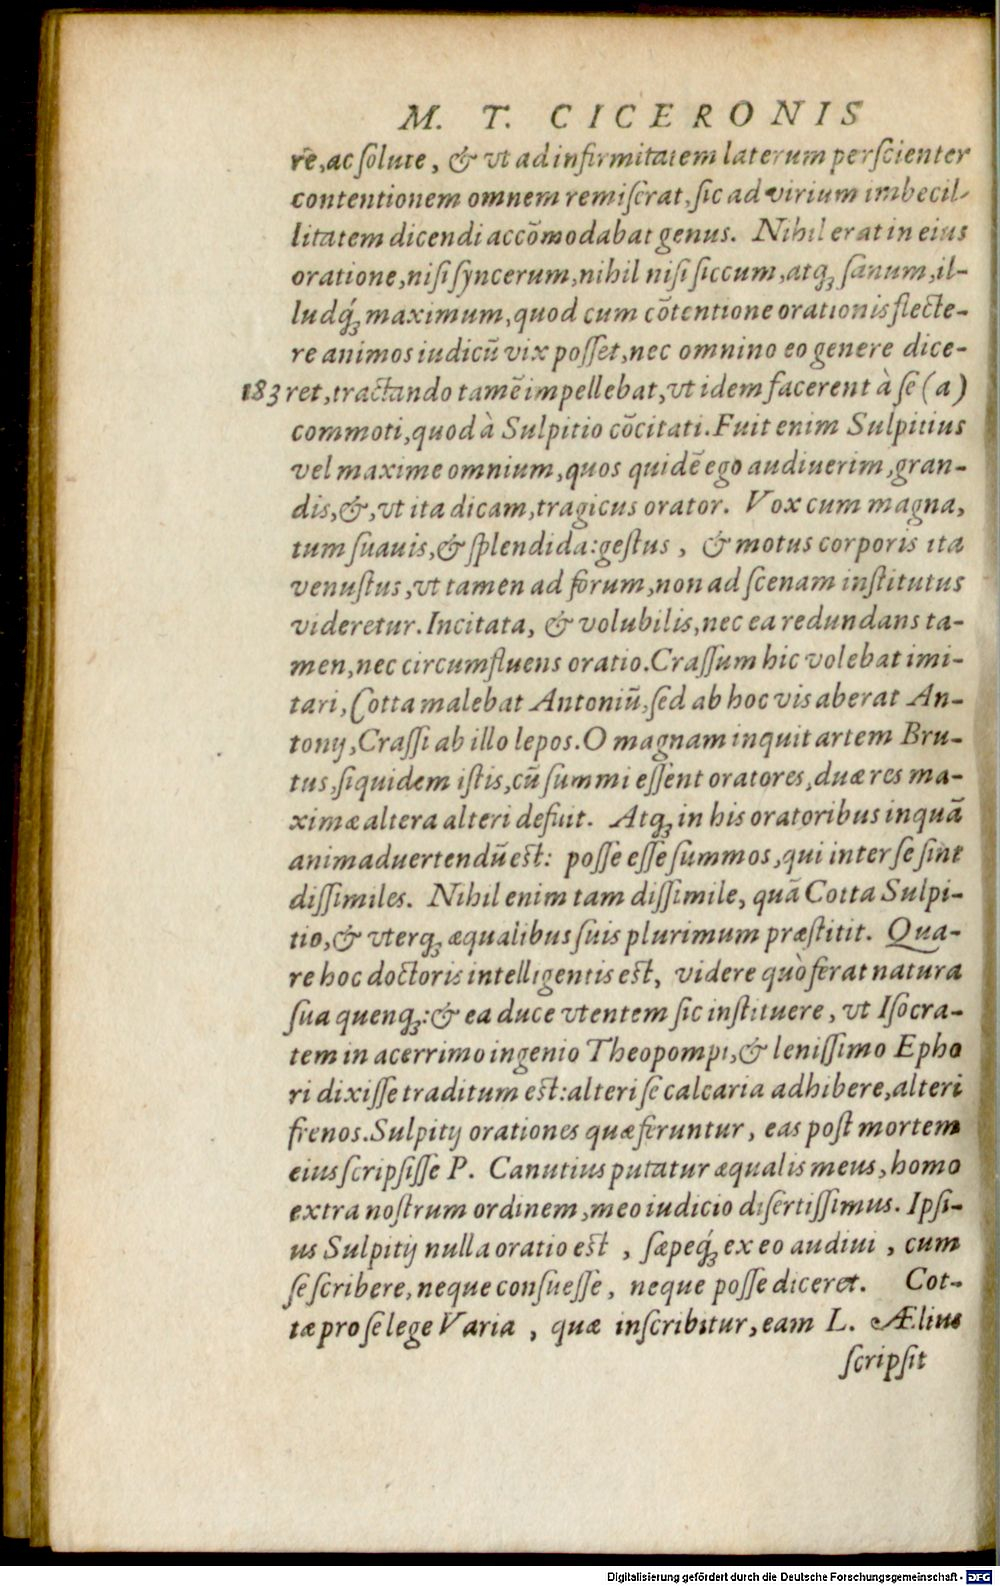 M. T. CICERONIS
re, ac ſolute, & vt ad infirmitatem laterum perſcienter
contentionem omnem remiſerat, ſic ad virium imbecil-
litatem dicendi accõmodabat genus. Nihil erat in eius
oratione, niſi ſyncerum, nihil niſi ſiccum, atqꝫ ſanum, il-
ludqꝫ́ maximum, quod cum cõtentione orationis flecte-
re animos iudicũ vix poſſet, nec omnino eo genere dice-
183 ret, tractando tamẽ impellebat, vt idem facerent à ſe (a)
commoti, quod à Sulpitio cõcitati. Fuit enim Sulpitius
vel maxime omnium, quos quidẽ ego audiuerim, gran-
dis, &, vt ita dicam, tragicus orator. Vox cum magna,
tum ſuauis, & ſplendida: geſtus, & motus corporis ita
venuſtus, vt tamen ad forum, non ad ſcenam inſtitutus
videretur. Incitata, & volubilis, nec ea redundans ta-
men, nec circumfluens oratio. Craſſum hic volebat imi-
tari, Cotta malebat Antoniũ, ſed ab hoc vis aberat An-
tonij, Craſſi ab illo lepos. O magnam inquit artem Bru-
tus, ſiquidem iſtis, cũ ſummi eſſent oratores, duæ res ma-
ximæ altera alteri defuit. Atqꝫ in his oratoribus inquã
animaduertendũ est: poſſe eſſe ſummos, qui inter ſe ſint
diſſimiles. Nihil enim tam diſſimile, quã Cotta Sulpi-
tio, & vterqꝫ æqualibus ſuis plurimum præſtitit. Qua-
re hoc doctoris intelligentis est, videre quò ferat natura
ſua quenqꝫ: & ea duce vtentem ſic inſtituere, vt Iſocra-
tem in acerrimo ingenio Theopompi, & leniſſimo Epho
ri dixiſſe traditum est: alteri ſe calcaria adhibere, alteri
frenos. Sulpitij orationes quæ feruntur, eas poſt mortem
eius ſcripſiſſe P. Canutius putatur æqualis meus, homo
extra noſtrum ordinem, meo iudicio diſertiſſimus. Ipſi-
us Sulpitij nulla oratio est, ſæpeqꝫ́ ex eo audiui, cum
ſe ſcribere, neque conſueſſe, neque poſſe diceret. Cot-
tæ pro ſe lege Varia, quæ inſcribitur, eam L. Ælius
ſcripſit
Digitalisierung gefördert durch die Deutsche Forschungsgemeinschaft - DFG